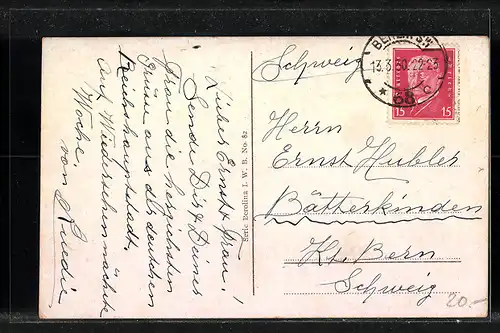 Lieber Ernst & Frau!
Sende Dir & Deiner
Frau die herzlichsten
Grüsse aus der deutschen
Reichshauptstadt.
Auf Wiedersehen nächste
Woche,
von Ruedi
Serie Berolina I. W. B. No. 82
Schweiz
BERLIN SW
13.3.30.22-23
* 68 c
15 15
Herrn
Ernst Hubler
Bätterkinden
Kt. Bern
Schweiz
20.-